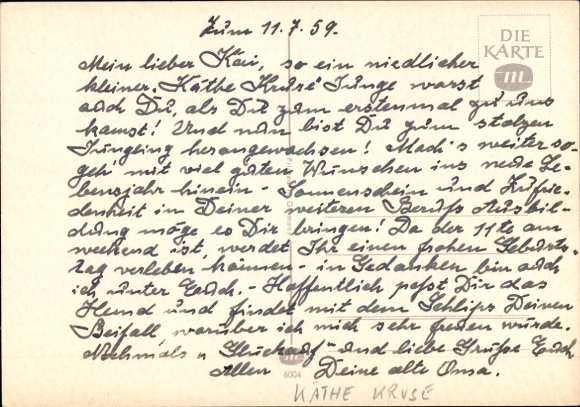 Zum 11.7.59.
DIE
KARTE
m
Mein lieber Kai, so ein niedlicher
kleiner "Käthe Kruse" Junge warst
auch Du, als Du zum erstenmal zu uns
kamst! Und nun bist Du zum stolzen
Jüngling herangewachsen! Mach's weiter so-
geh mit viel guten Wünschen ins neue Le-
bensjahr hinein - Sonnenschein und Zufrie-
denheit in Deiner weiteren Berufs Ausbil-
dung möge es Dir bringen! Da der 11te am
weekend ist, werdet Ihr einen frohen Geburts-
tag verleben können - in Gedanken bin auch
ich unter Euch. - Hoffentlich paßt Dir das
Hemd und findet mit dem Schlips Deinen
Beifall, worüber ich mich sehr freuen würde.
Nochmals "Glückauf" und liebe Grüße Euch
Allen Deine alte Oma.
6004
KÄTHE KRUSE